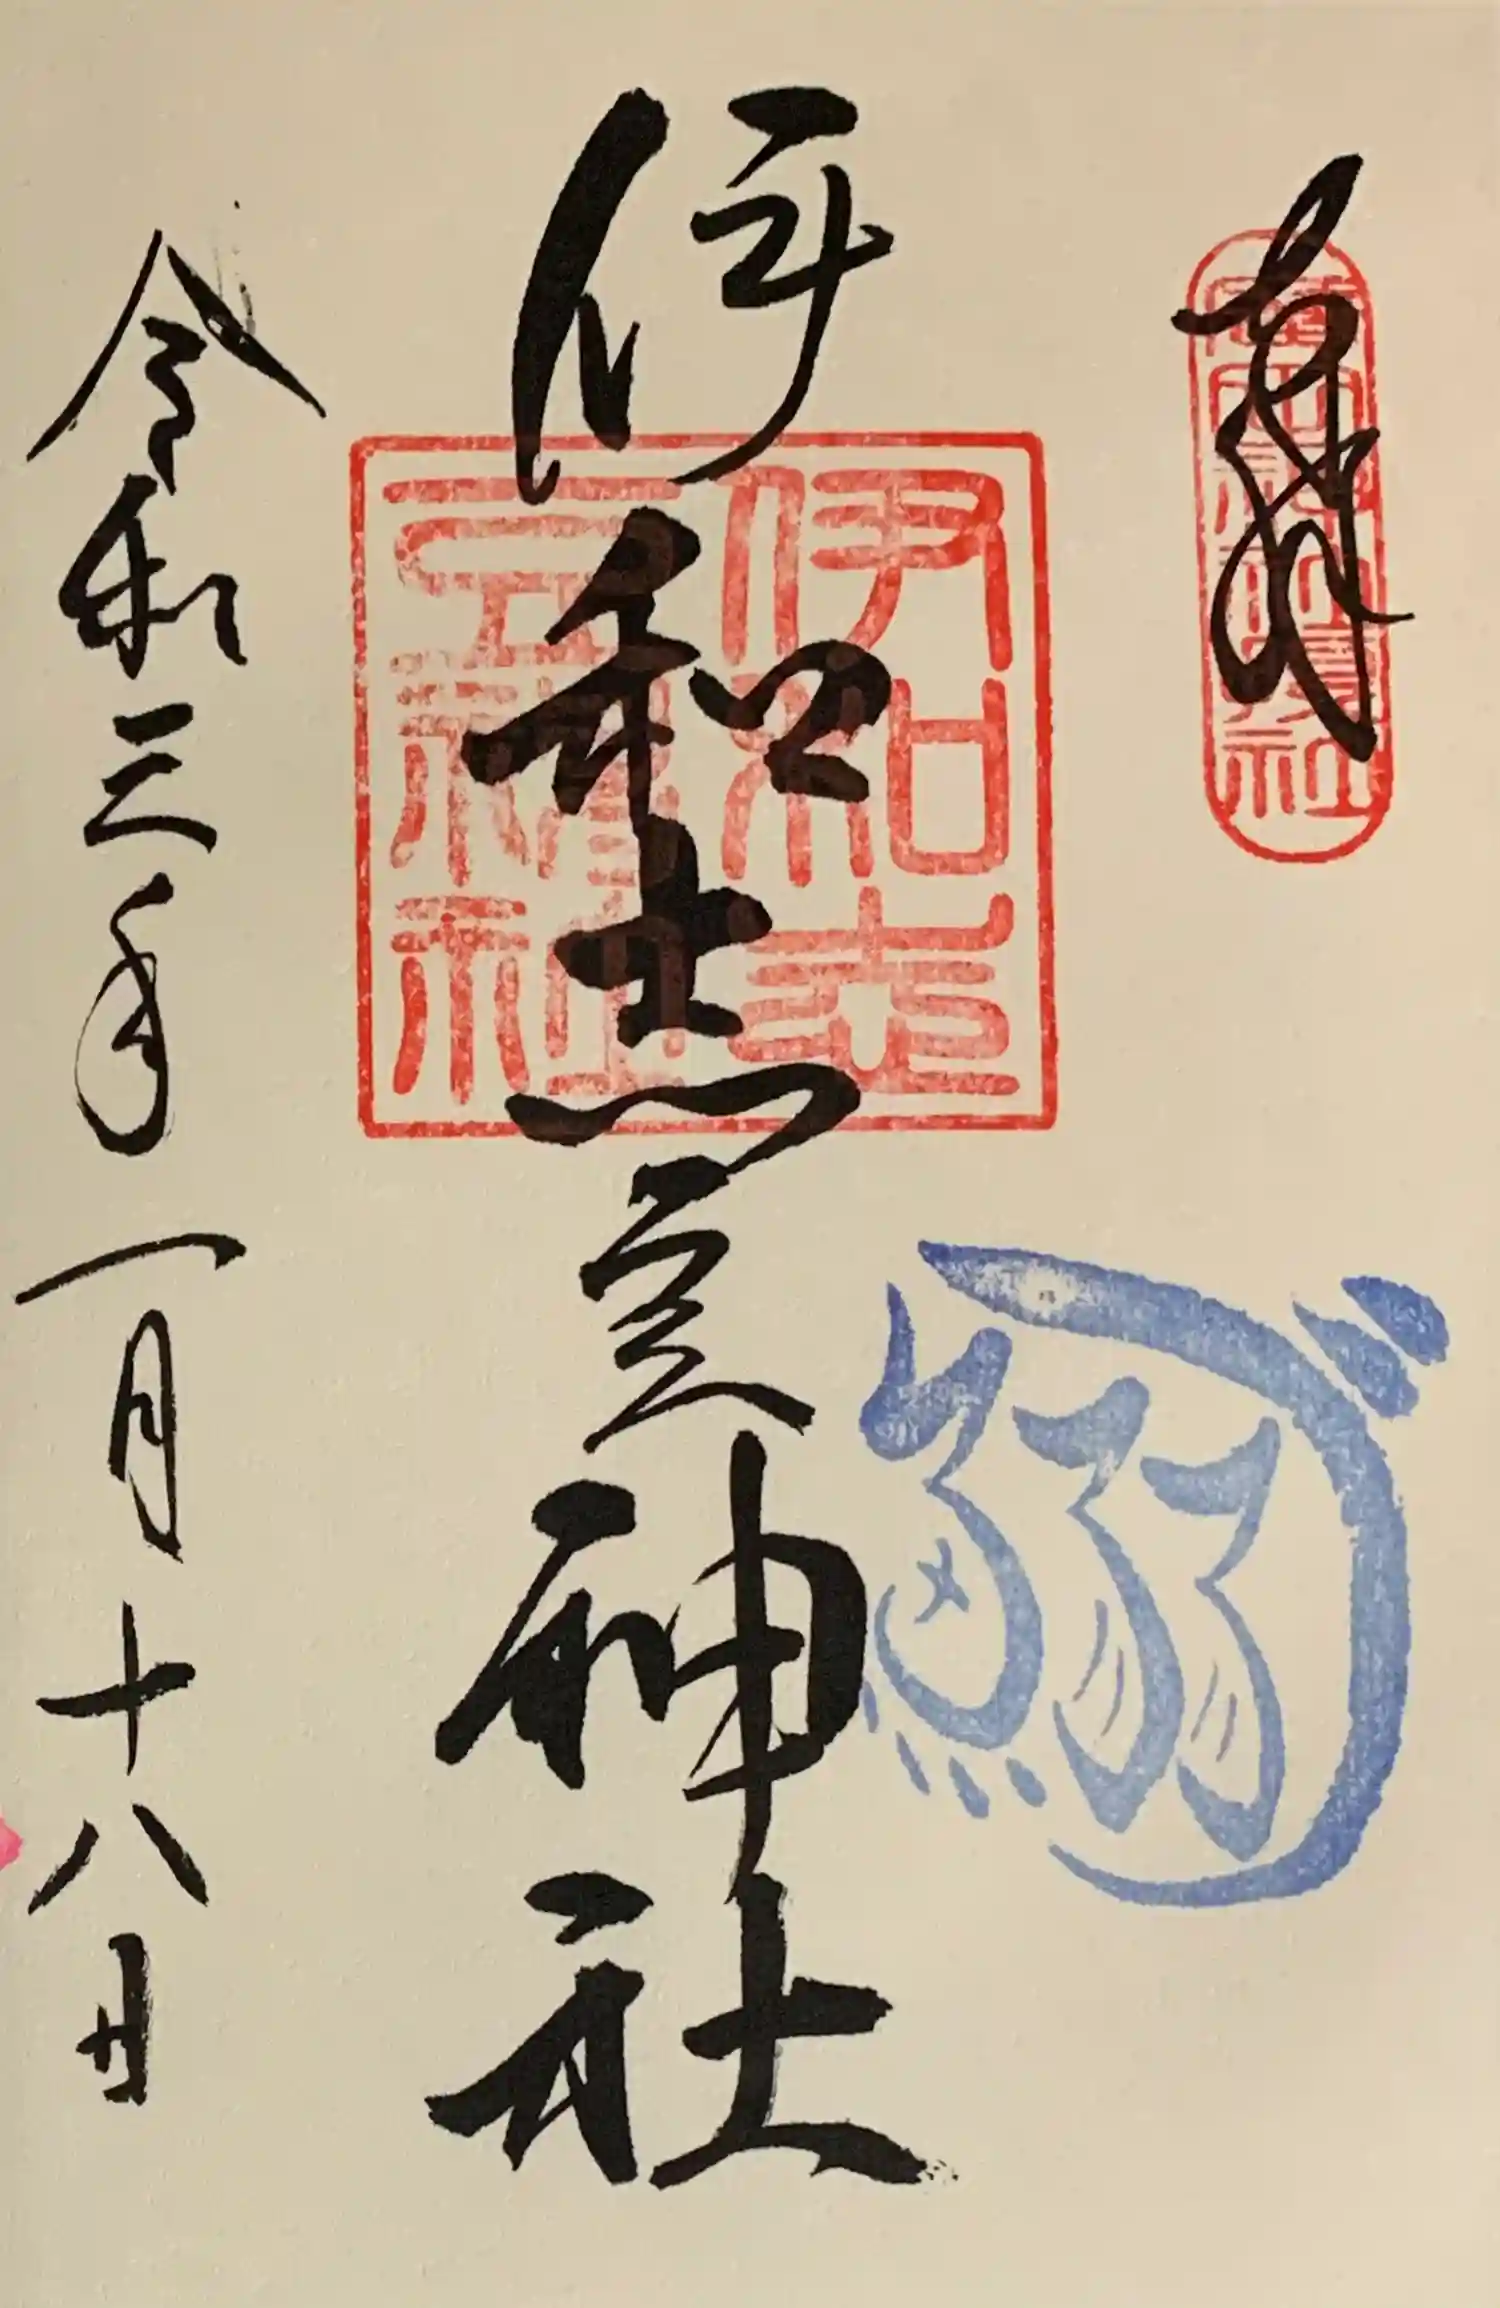 奉拝
伊和志豆神社
伊和志
豆神社
令和三年一月十八日